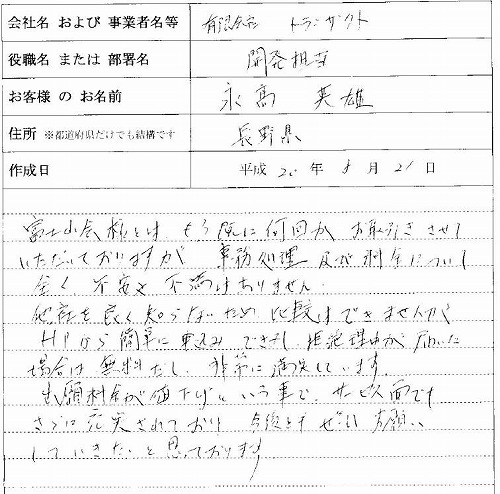 会社名 および 事業者名等 有限会社 トランザクト
役職名 または 部署名 開発担当
お客様 の お名前 永高 英雄
住所 ※都道府県だけでも結構です 長野県
作成日 平成 20 年 8 月 21 日
富士山会様とは もう既に何回か お取引き させて
いただいておりますが 事務処理 及び 料金について
全く 不安や 不満はありません。
他社を良く知らないため 比較はできませんが
HPから 簡単に 申込み できるし 拒絶理由が 届いた
場合は 無料だし、非常に満足しています。
出願料金が値下げという事で、サービス面でも
さらに 充実されており 今後とも ぜひ お願い
していきたいと思っております